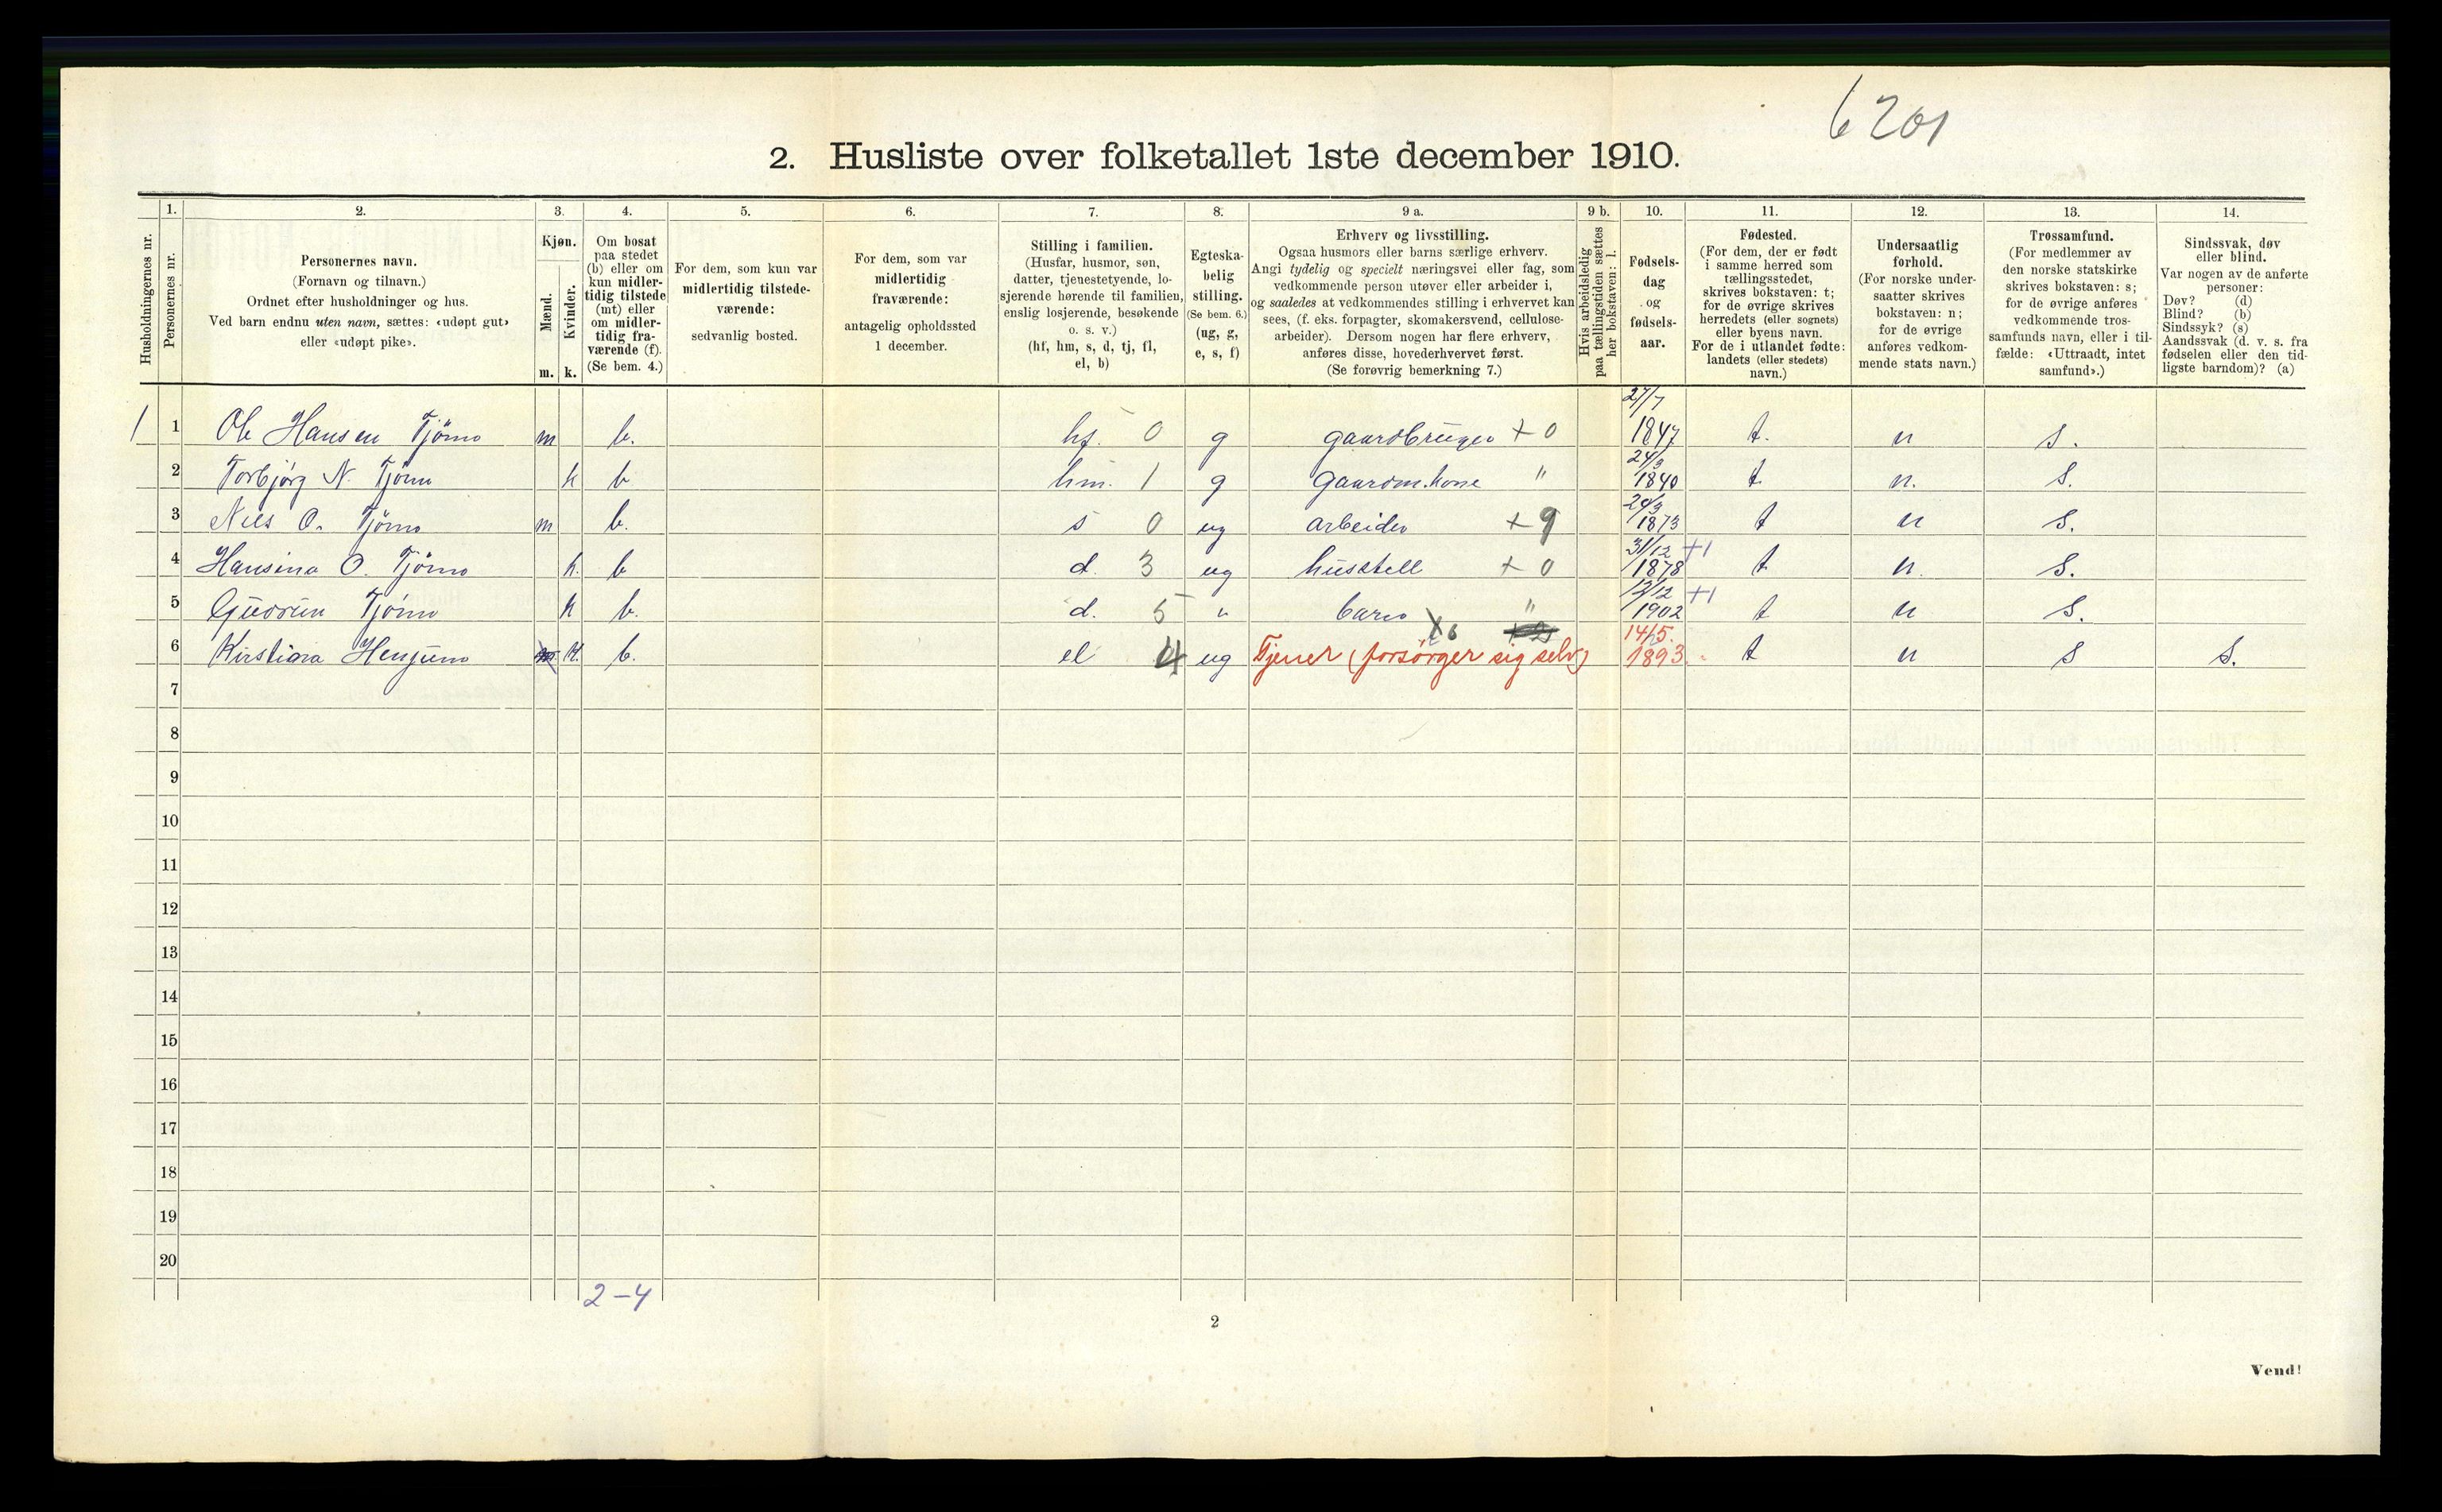 6201
2. Husliste over folketallet 1ste december 1910.
Husholdningernes nr.
1.
Personernes nr.
2.
Personernes navn.
(Fornavn og tilnavn.)
Ordnet efter husholdninger og hus.
Ved barn endnu uten navn, sættes: «udøpt gut»
eller «udøpt pike».
3.
Kjøn.
Mænd.
Kvinder.
m. k.
4.
Om bosat
paa stedet
(b) eller om
kun midler-
tidig tilstede
(mt) eller
om midler-
tidig fra-
værende (f).
(Se bem. 4.)
5.
For dem, som kun var
midlertidig tilstede-
værende:
sedvanlig bosted.
6.
For dem, som var
midlertidig
fraværende:
antagelig opholdssted
1 december.
7.
Stilling i familien.
(Husfar, husmor, søn,
datter, tjenestetyende, lo-
sjerende hørende til familien,
enslig losjerende, besøkende
o. s. v.)
(hf, hm, s, d, tj, fl,
el, b)
8.
Egteska-
belig
stilling.
(Se bem. 6.)
(ug, g,
e, s, f)
9 a.
Erhverv og livsstilling.
Ogsaa husmors eller barns særlige erhverv.
Angi tydelig og specielt næringsvei eller fag, som
vedkommende person utøver eller arbeider i,
og saaledes at vedkommendes stilling i erhvervet kan
sees, (f. eks. forpagter, skomakersvend, cellulose-
arbeider). Dersom nogen har flere erhverv,
anføres disse, hovederhvervet først.
(Se forøvrig bemerkning 7.)
9 b.
Hvis arbeidsledig
paa tællingstiden sættes
her bokstaven: l.
10.
Fødsels-
dag
og
fødsels-
aar.
11.
Fødested.
(For dem, der er født
i samme herred som
tællingsstedet,
skrives bokstaven: t;
for de øvrige skrives
herredets (eller sognets)
eller byens navn.
For de i utlandet fødte:
landets (eller stedets)
navn.)
12.
Undersaatlig
forhold.
(For norske under-
saatter skrives
bokstaven: n;
for de øvrige
anføres vedkom-
mende stats navn.)
13.
Trossamfund.
(For medlemmer av
den norske statskirke
skrives bokstaven: s;
for de øvrige anføres
vedkommende tros-
samfunds navn, eller i til-
fælde: «Uttraadt, intet
samfund».)
14.
Sindssvak, døv
eller blind.
Var nogen av de anførte
personer:
Døv? (d)
Blind? (b)
Sindssyk? (s)
Aandssvak (d. v. s. fra
fødselen eller den tid-
ligste barndom)? (a)
1 1 Ole Hansen Tjömo m b. hf. 0 g gaardbruger + 0 27/7 1847 t. n s.
2 Torbjörg N. Tjömo k b hm. 1 g gaardm. kone " 24/3 1840 t n. s.
3 Nils O. Tjömo m b. s 0 ug arbeider + 9 1873 t n s.
4 Hansina O. Tjömo k. b d. 3 ug husstell + 0 31/12 1878 +1 t n. s.
5 Gudrun Tjömo k b. d. 5 " barn " 12/12 1902 +1 t n s.
6 Kirstina Henjumo k. b. el 4 ug Tjener (forsørger sig selv) 14/5. 1893 t n s s.
7
8
9
10
11
12
13
14
15
16
17
18
19
20
2-4
2
Vend!